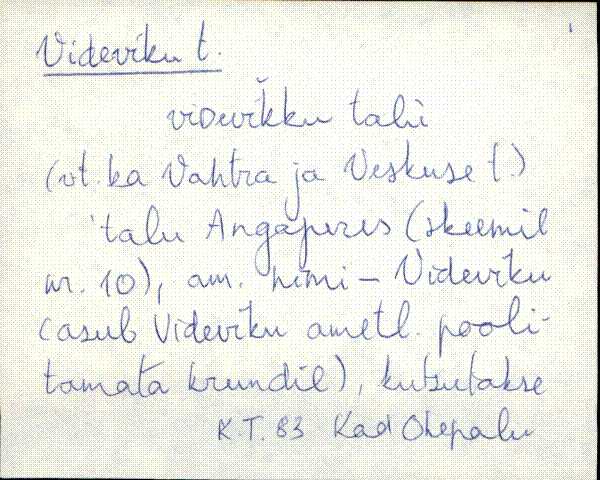 Videviku t.
videvikku talu
(vt. ka Vahtra ja Veskuse t.)
'talu Angaperes (skeemil
nr. 10), am. nimi - Videviku
(asub Videviku ametl. pooli-
tamata krundil), kutsutakse
K.T. 83 Kad Ohepalu